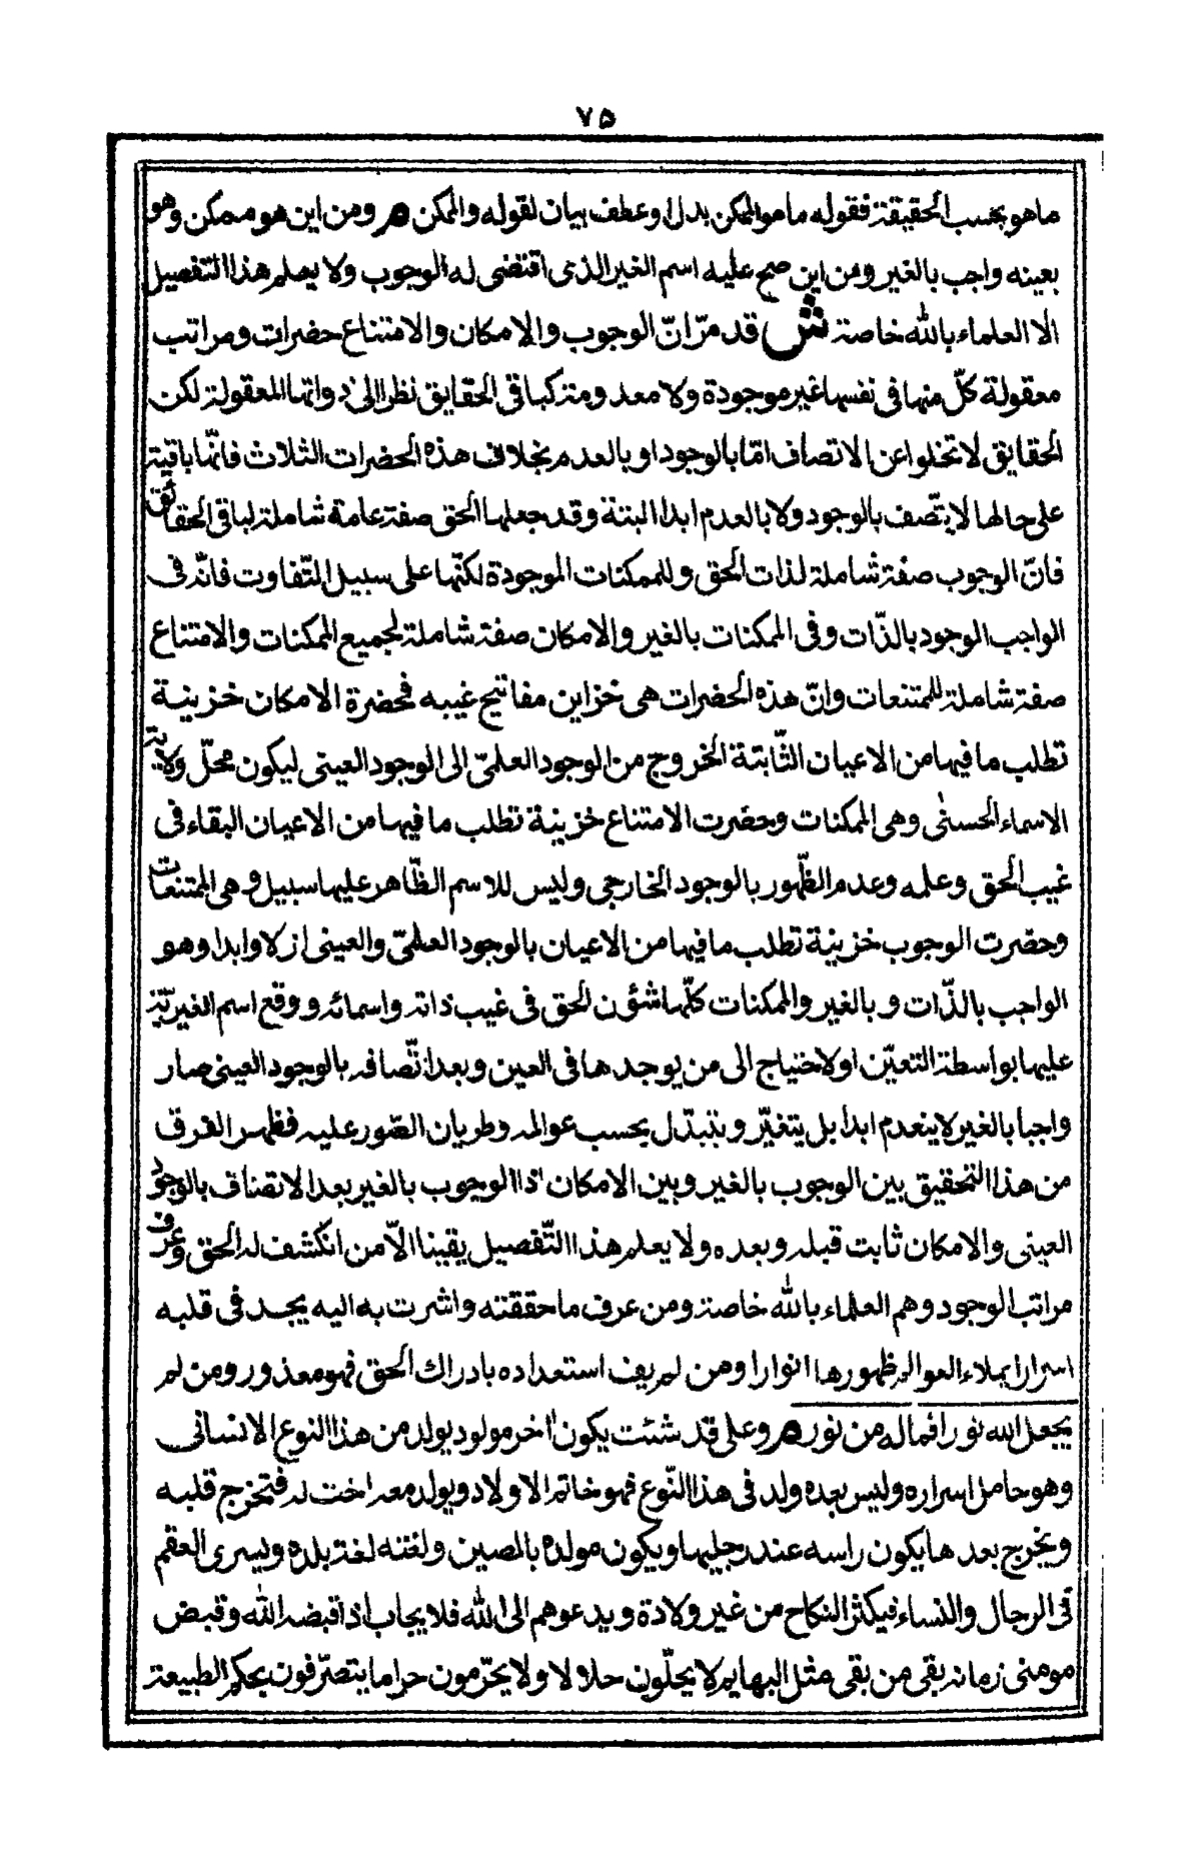 ۷۵
ما هو بحسب الحقيقة فقوله ما هو الممكن بدل او عطف بيان لقوله والممكن م ومن اين هو ممكن وهو
بعينه واجب بالغير ومن اين صح عليه اسم الغير الذى اقتضى له الوجوب ولا يعلم هذا التفصيل
الا العلماء بالله خاصة ش قد مرّ انّ الوجوب والامكان والامتناع حضرات ومراتب
معقولة كلّ منها فى نفسها غير موجودة ولا معدومة كباقى الحقايق نظرا الى ذواتها المعقولة لكن
الحقايق لا تخلوا عن الاتصاف امّا بالوجود او بالعدم بخلاف هذه الحضرات الثلاث فانّها باقية
على حالها لا يتّصف بالوجود ولا بالعدم ابدا البتة وقد جعلها الحق صفة عامة شاملة لباقى الحقائق
فانّ الوجوب صفة شاملة لذات الحق وللممكنات الموجودة لكنّها على سبيل التّفاوت فانّه فى
الواجب الوجود بالذّات وفى الممكنات بالغير والامكان صفة شاملة لجميع الممكنات والامتناع
صفة شاملة للممتنعات وانّ هذه الحضرات هى خزاين مفاتيح غيبه فحضرة الامكان خزينة
تطلب ما فيها من الاعيان الثّابتة الخروج من الوجود العلمىّ الى الوجود العينى ليكون محلّ ولاية
الاسماء الحسنى وهى الممكنات وحضرت الامتناع خزينة تطلب ما فيها من الاعيان البقاء فى
غيب الحق وعلمه وعدم الظّهور بالوجود الخارجى وليس للاسم الظّاهر عليها سبيل وهى الممتنعات
وحضرت الوجوب خزينة تطلب ما فيها من الاعيان بالوجود العلمىّ والعينى ازلا وابدا وهو
الواجب بالذّات وبالغير والممكنات كلّها شؤن لحق فى غيب ذاته واسمائه ووقع اسم الغيريّة
عليها بواسطة التعيّن اولاحتياج الى من يوجدها فى العين وبعد اتّصافه بالوجود العينى صار
واجبا بالغير لا ينعدم ابدا بل يتغيّر ويتبدّل بحسب عوالمه وطريان الصّور عليه فظهر الفرق
من هذا التحقيق بين الوجوب بالغير وبين الامكان اذا الوجوب بالغير بعد الاتصناف بالوجود
العينى والامكان ثابت قبله وبعده ولا يعلم هذا التّفصيل يقينا الاّ من انكشف له الحق وعرف
مراتب الوجود وهم العلماء بالله خاصة ومن عرف ما حققته واشرت به اليه يجد فى قلبه
اسرارا يملاء العوالم ظهورها انوارا ومن لم يف استعداده بادراك الحق فهو معذور ومن لم
يجعل الله نورا فما له من نور م وعلى قد شئت يكون اخر مولود يولد من هذا النوع الانسانى
وهو حامل اسراره وليس بعده ولد فى هذا النّوع فهو خاتم الاولاد ويولد معه اخت له فتخرج قلبه
ويخرج بعدها يكون راسه عند رجليها ويكون مولده بالصين ولغته لغة بلده ويسرى العقم
فى الرجال والنساء فيكثر النكاح من غير ولادة ويدعوهم الى الله فلا يجاب اذا قبضه الله وقبض
مومنى زمانه بقى من بقى مثل البهايم لا يحلّون حلالا ولا يحرّمون حراما يتصرّفون بحكم الطبيعة